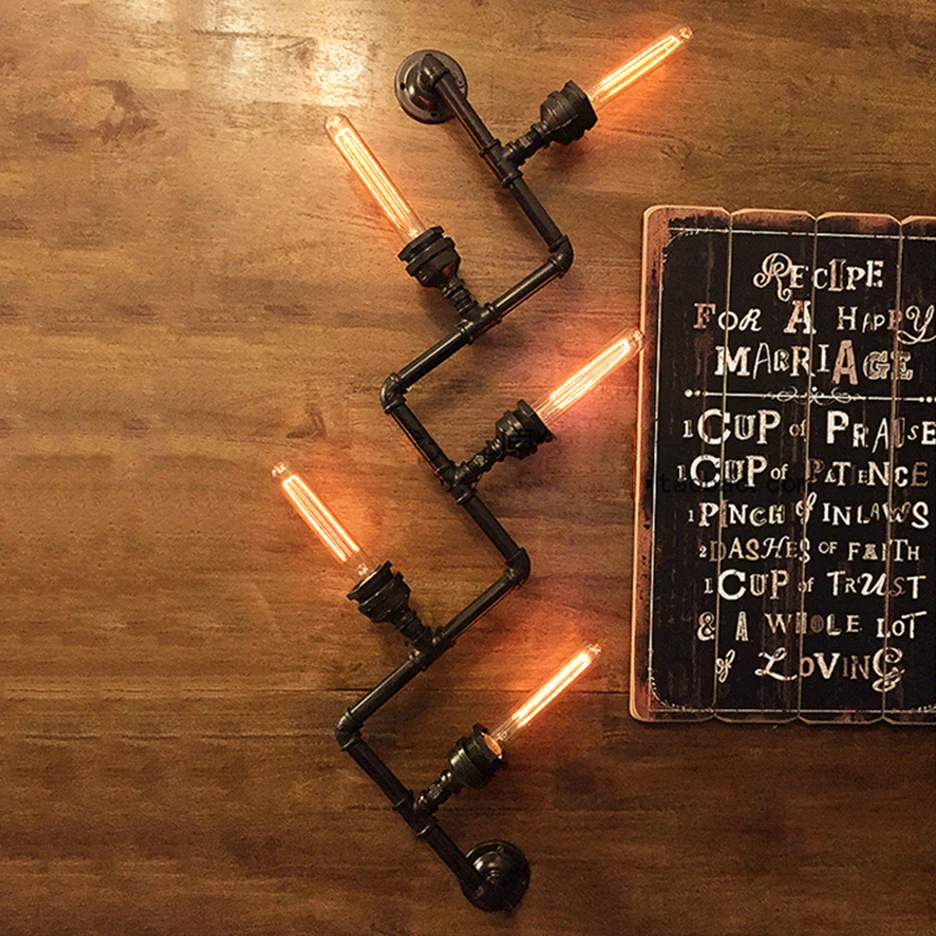 RECIPE
FOR A HAPPY
MARRIAGE
1 CUP OF PRAISE
1 CUP OF PATIENCE
1 PINCH of INLAWS
2 DASHES OF FAITH
1 CUP of TRUST
& A WHOLE LOT
of LOVING